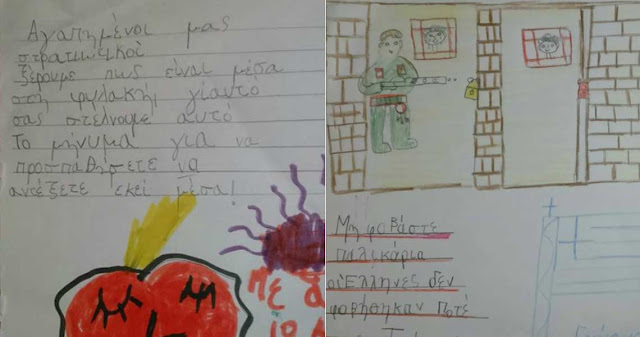 Αγαπημένοι μας
στρατιωτικοί
ξέρουμε πως είναι μέσα
στη φυλακή γίαυτό
σας στέλνουμε αυτό
Το μήνυμα για να
προσπαθήσετε να
αντέξετε εκεί μέσα!
Με
Μη φοβάστε
παλικάρια
οι Ελληνες δεν
φοβήθηκαν Ποτέ